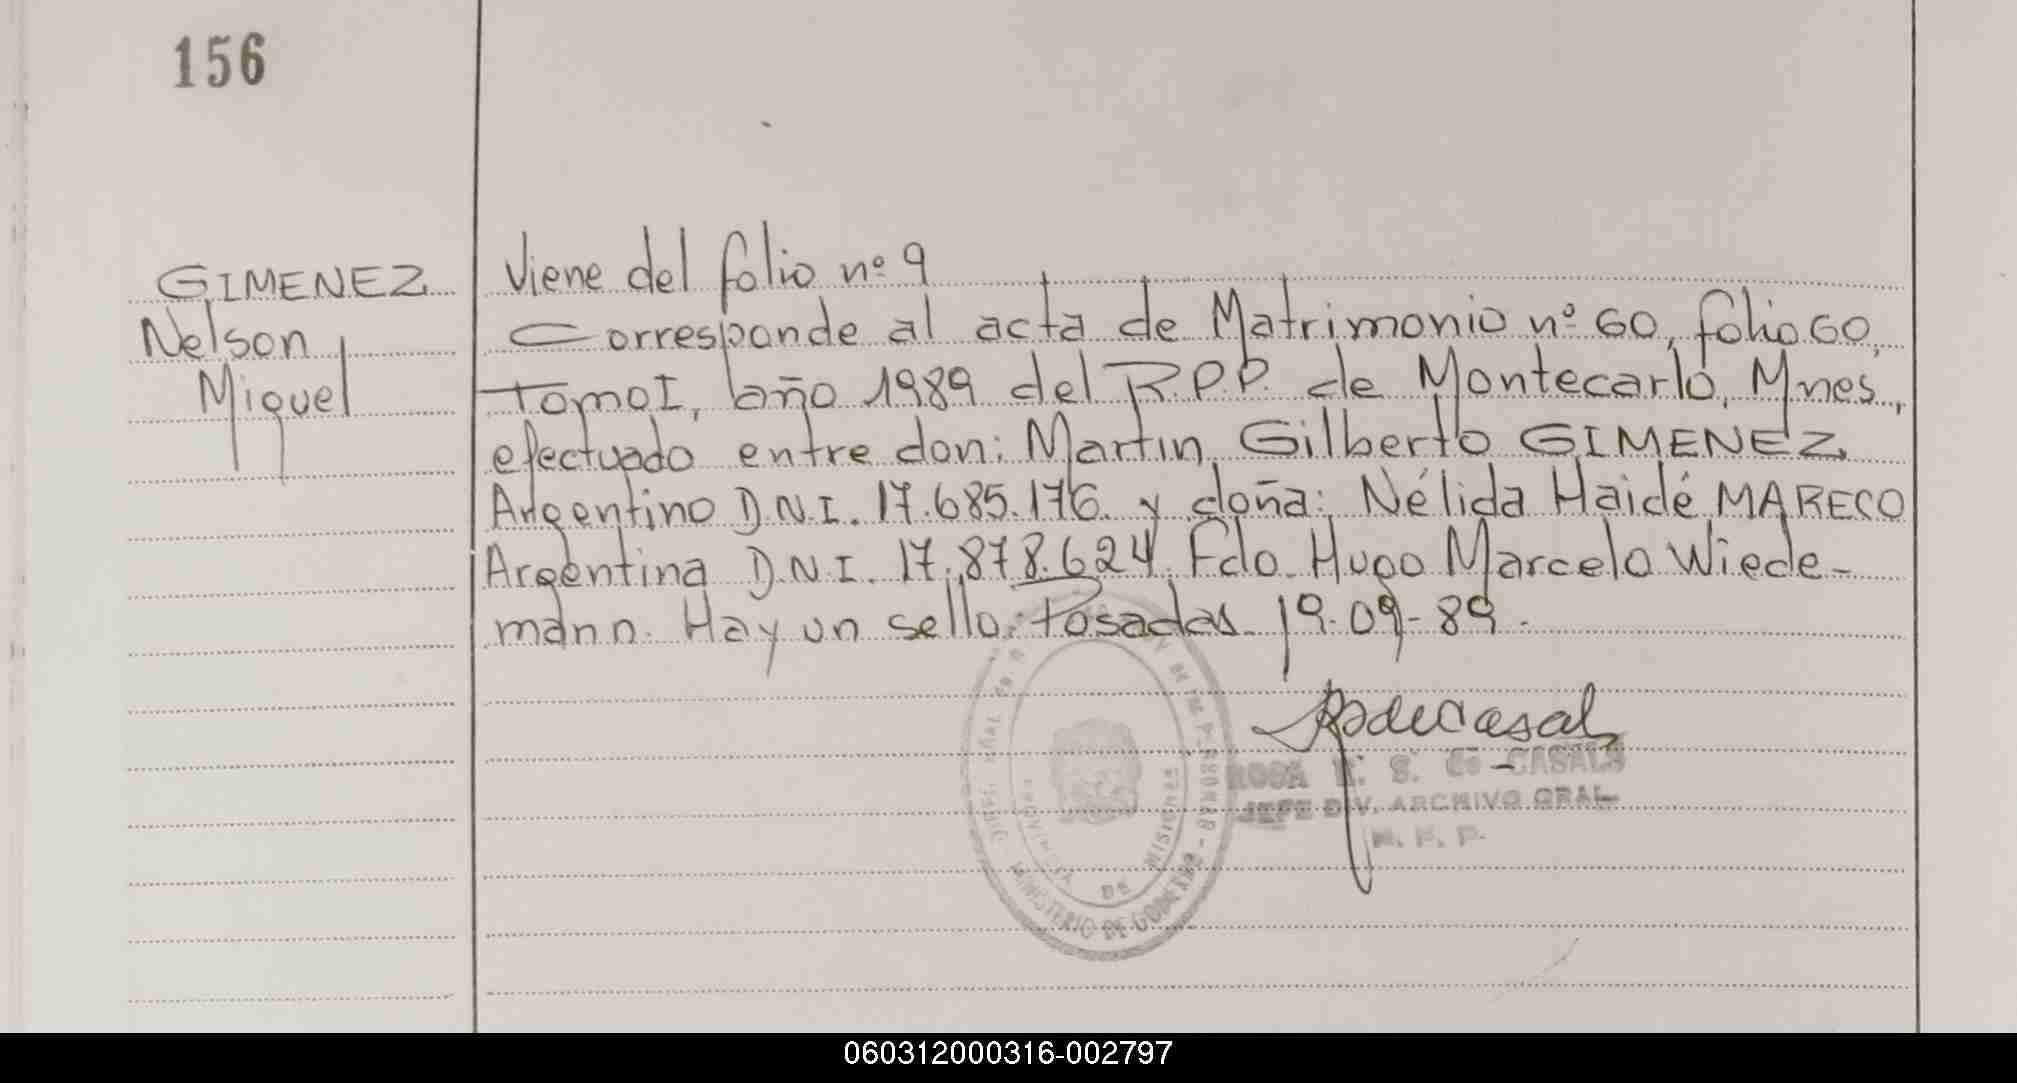 156
GIMENEZ
Nelson
Miguel
Viene del folio nº 9
Corresponde al acta de Matrimonio nº 60, folio 60,
Tomo I, año 1989 del R.P.P. de Montecarlo, Mnes,
efectuado entre don: Martin Gilberto GIMENEZ
Argentino D.N.I. 17.685.176. y doña: Nélida Haidé MARECO
Argentina D.N.I. 17.878.624. Fdo. Hugo Marcelo Wiede-
mann. Hay un sello: Posadas 19-09-89.
ROSA S. de CASALS
JEFE DIV. ARCHIVO GRAL
MINISTERIO DE GOBIERNO
DE MISIONES
060312000316-002797